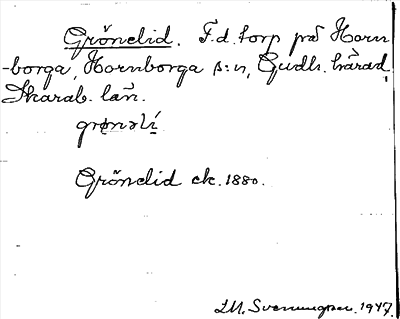 Grönelid. F.d. torp på Horn
-borga, Hornborga s:n, Gudh. härad,
Skarab. län.
grønəlí
Grönelid ek. 1880.
I.M. Svenungsson. 1947.